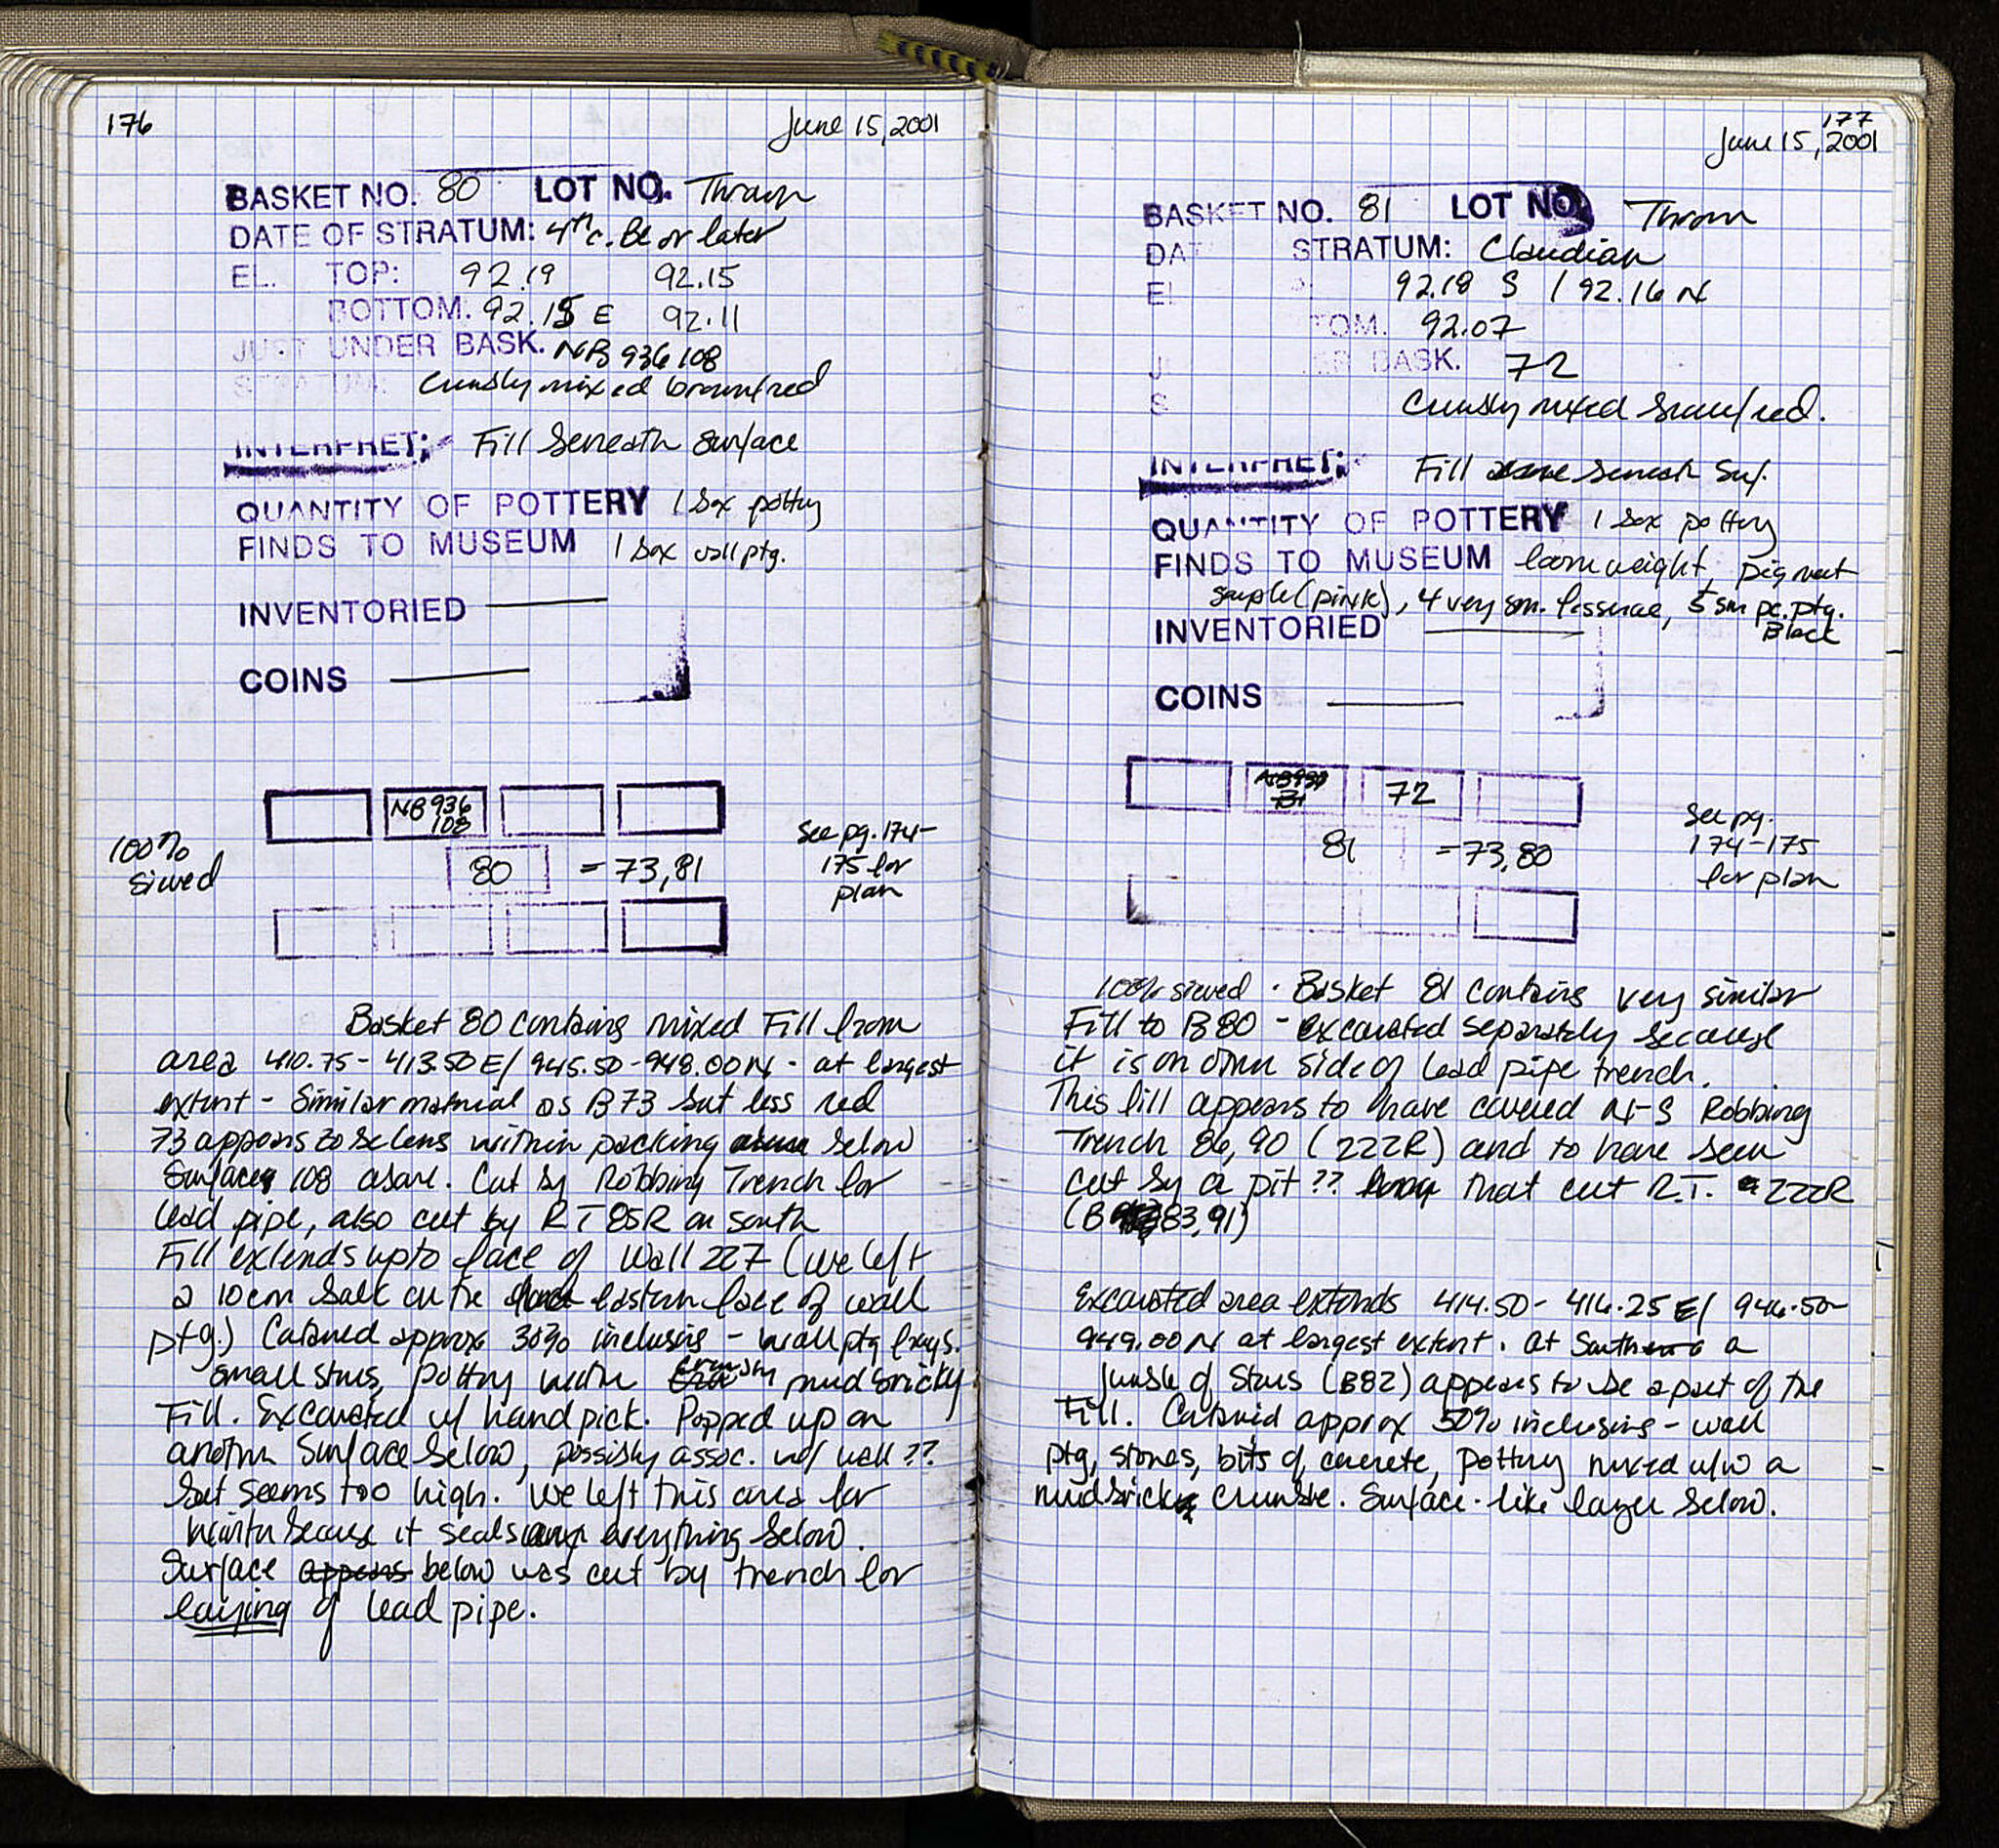 176
June 15, 2001
BASKET NO. 80 LOT NO. Thrown
DATE OF STRATUM: 4th c. BC or later
EL. TOP: 92.19 92.15
BOTTOM. 92.15 E 92.11
JUST UNDER BASK. NB 936 108
STRATUM: Crumbly mixed brown/red
INTERPRET; Fill beneath surface
QUANTITY OF POTTERY 1 box pottery
FINDS TO MUSEUM 1 box wall ptg.
INVENTORIED
COINS
NB 936
108
100%
sieved
80 = 73,81
See pg. 174-
175 for
plan
Basket 80 contains mixed fill from
area 410.75 - 413.50 E/ 945.50-948.00 N - at largest
extent - Similar material as B73 but less red
73 appears to be lens within packing below
Surface 108 above. Cut by Robbing Trench for
lead pipe, also cut by RT 85R on south
Fill extends up to face of Wall 227 (we left
a 10cm balk on the eastern face of wall
ptg.) Contained approx 30% inclusions - wall ptg frags.
small stones, pottery within crumbly mudbricky
Fill. Excavated w/ handpick. Popped up on
another surface below, possibly assoc. w/ wall ??
but seems too high. We left this area for
because it seals everything below.
Surface appears below was cut by trench for
laying of lead pipe.
177
June 15, 2001
BASKET NO. 81 LOT NO. Thrown
DAT STRATUM: Claudian
E 92.18 S / 92.16 N
TOM. 92.07
J ER BASK. 72
S Crumbly mixed brown/red.
INTERPRET; Fill beneath surf.
QUANTITY OF POTTERY 1 box pottery
FINDS TO MUSEUM loomweight, pigment
sample (pink), 4 very sm. tesserae, 5 sm pc. ptg.
Black
INVENTORIED
COINS
72
81 = 73,80
See pg.
174-175
for plan
100% sieved. Basket 81 contains very similar
Fill to B80 - excavated separately because
it is on other side of lead pipe trench.
This fill appears to have covered N-S Robbing
Trench 86, 90 (222R) and to have been
cut by a pit ?? that cut R.T. 222R
(B 83, 91)
Excavated area extends 414.50 - 416.25 E/ 946.50-
949.00 N at largest extent. At South a
jumble of stones (B82) appears to be a part of the
Fill. Contained approx 50% inclusions - wall
ptg, stones, bits of concrete, pottery mixed w/in a
mudbricky crumble. Surface-like layer below.